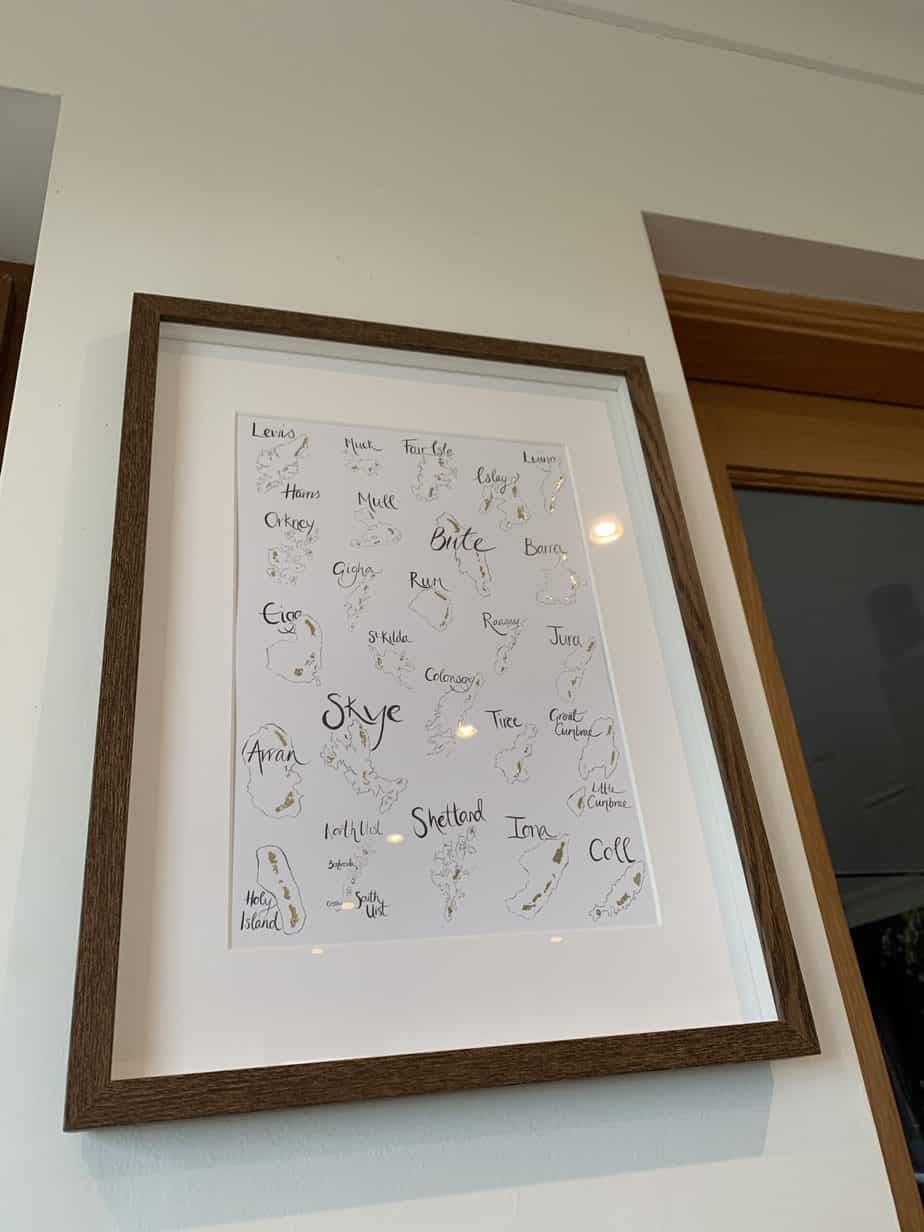 Lewis
Muck
Fair Isle
Islay
Harris
Mull
Orkney
Bute
Barra
Gigha
Rum
Eigg
St Kilda
Raasay
Jura
Colonsay
Skye
Tiree
Great
Cumbrae
Arran
Little
Cumbrae
Shetland
North Uist
Iona
Coll
Holy
Island
South
Uist